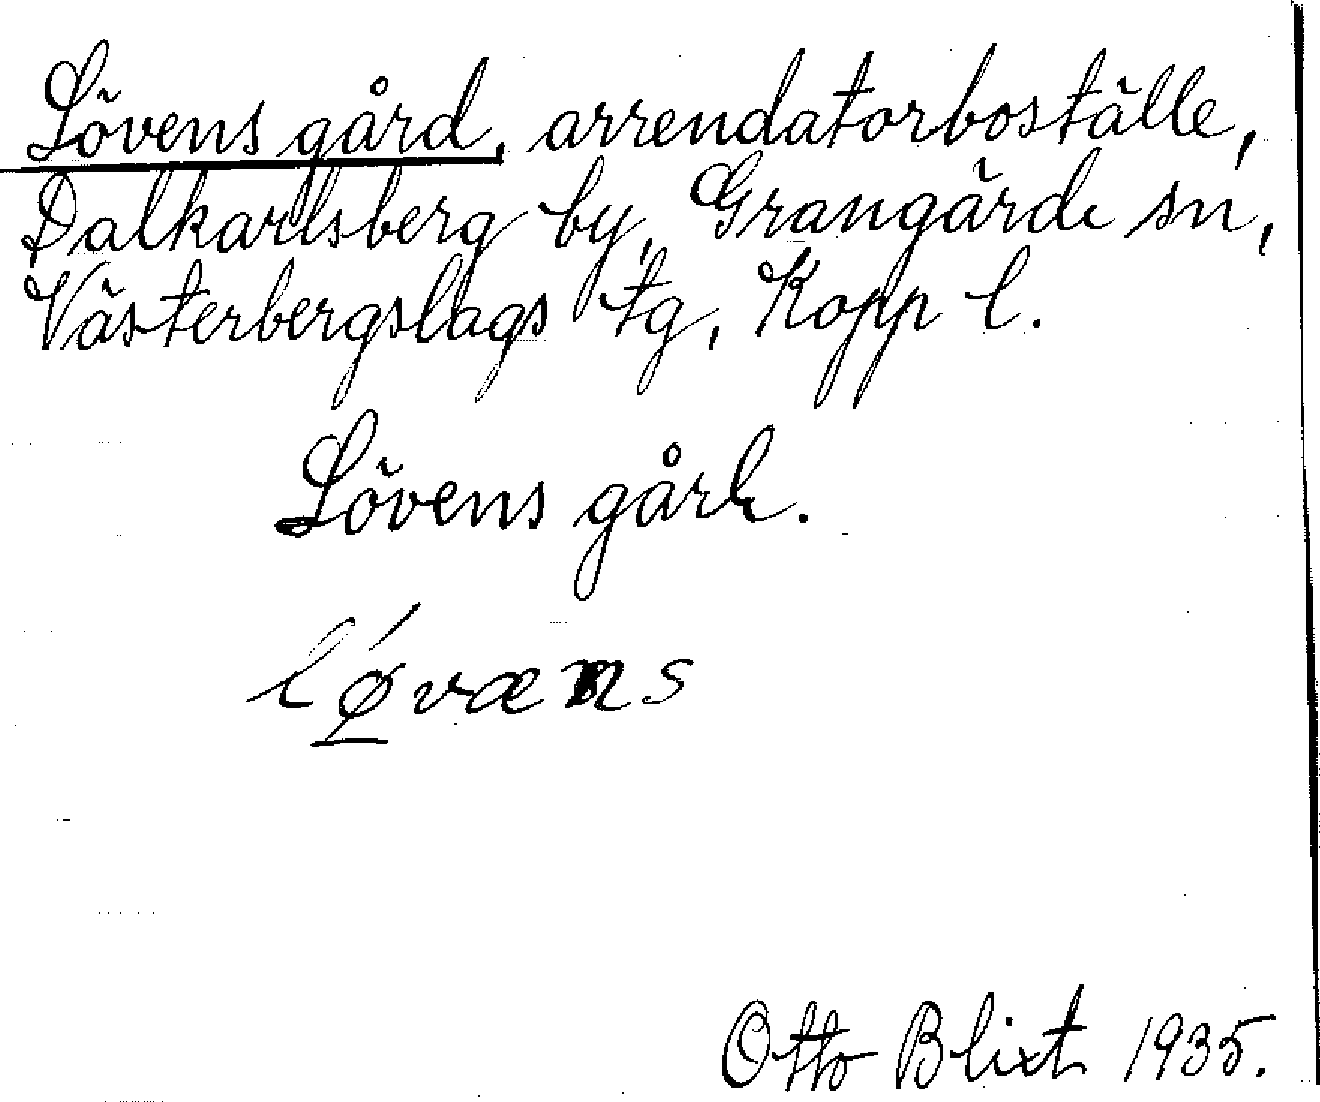 Lövens gård, arrendatorboställe,
Dalkarlsberg by, Grangärde sn,
Västerbergslags tg, Kopp l.
Lövens gård.
lǿvæns
Otto Blixt 1935.